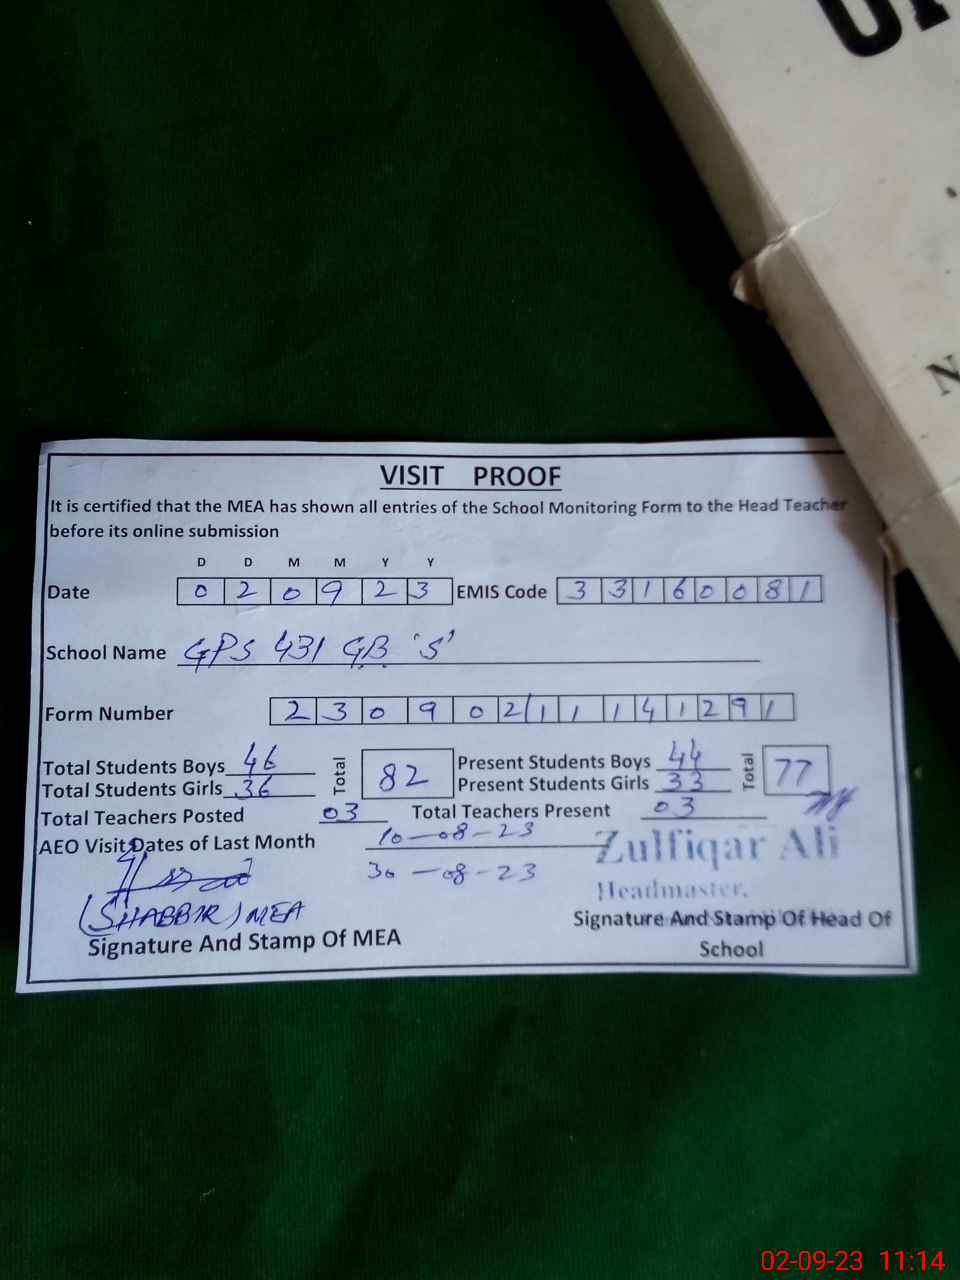 VISIT PROOF
It is certified that the MEA has shown all entries of the School Monitoring Form to the Head Teacher
before its online submission
D D M M Y Y
Date 0 2 0 9 2 3 EMIS Code 3 3 1 6 0 0 8 1
School Name GPS 431 GB 'S'
Form Number 2 3 0 9 0 2 1 1 1 4 1 2 9 1
Total Students Boys 46 Total 82 Present Students Boys 44 Total 77
Total Students Girls 36 Present Students Girls 33
Total Teachers Posted 03 Total Teachers Present 03
AEO Visit Dates of Last Month 10-08-23
30-08-23
Zulfiqar Ali
Headmaster,
(SHABBIR) MEA
Signature And Stamp Of MEA
Signature And Stamp Of Head Of
School
02-09-23 11:14